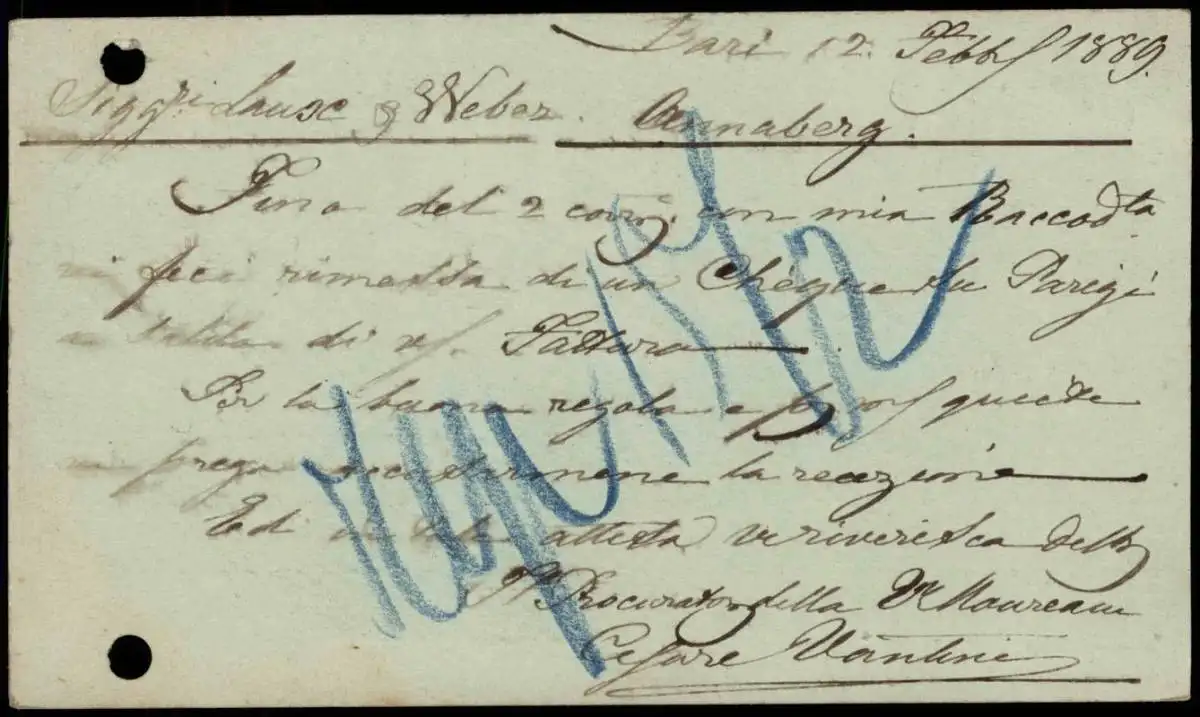 Bari 12. Febb. 1889.
Sigg.ri Lause & Weber. Annaberg.
Fino del 2 corr. con mia Raccod.ta
vi feci rimessa di un Chéque su Parigi
a saldo di v/. Fattura
Per la buona regola e p. norf quiete
vi prego accusarmene la recezione
Ed in tale attesa vi riverisca
Il Procuratore della Ve Maureau
Cesare Vantini